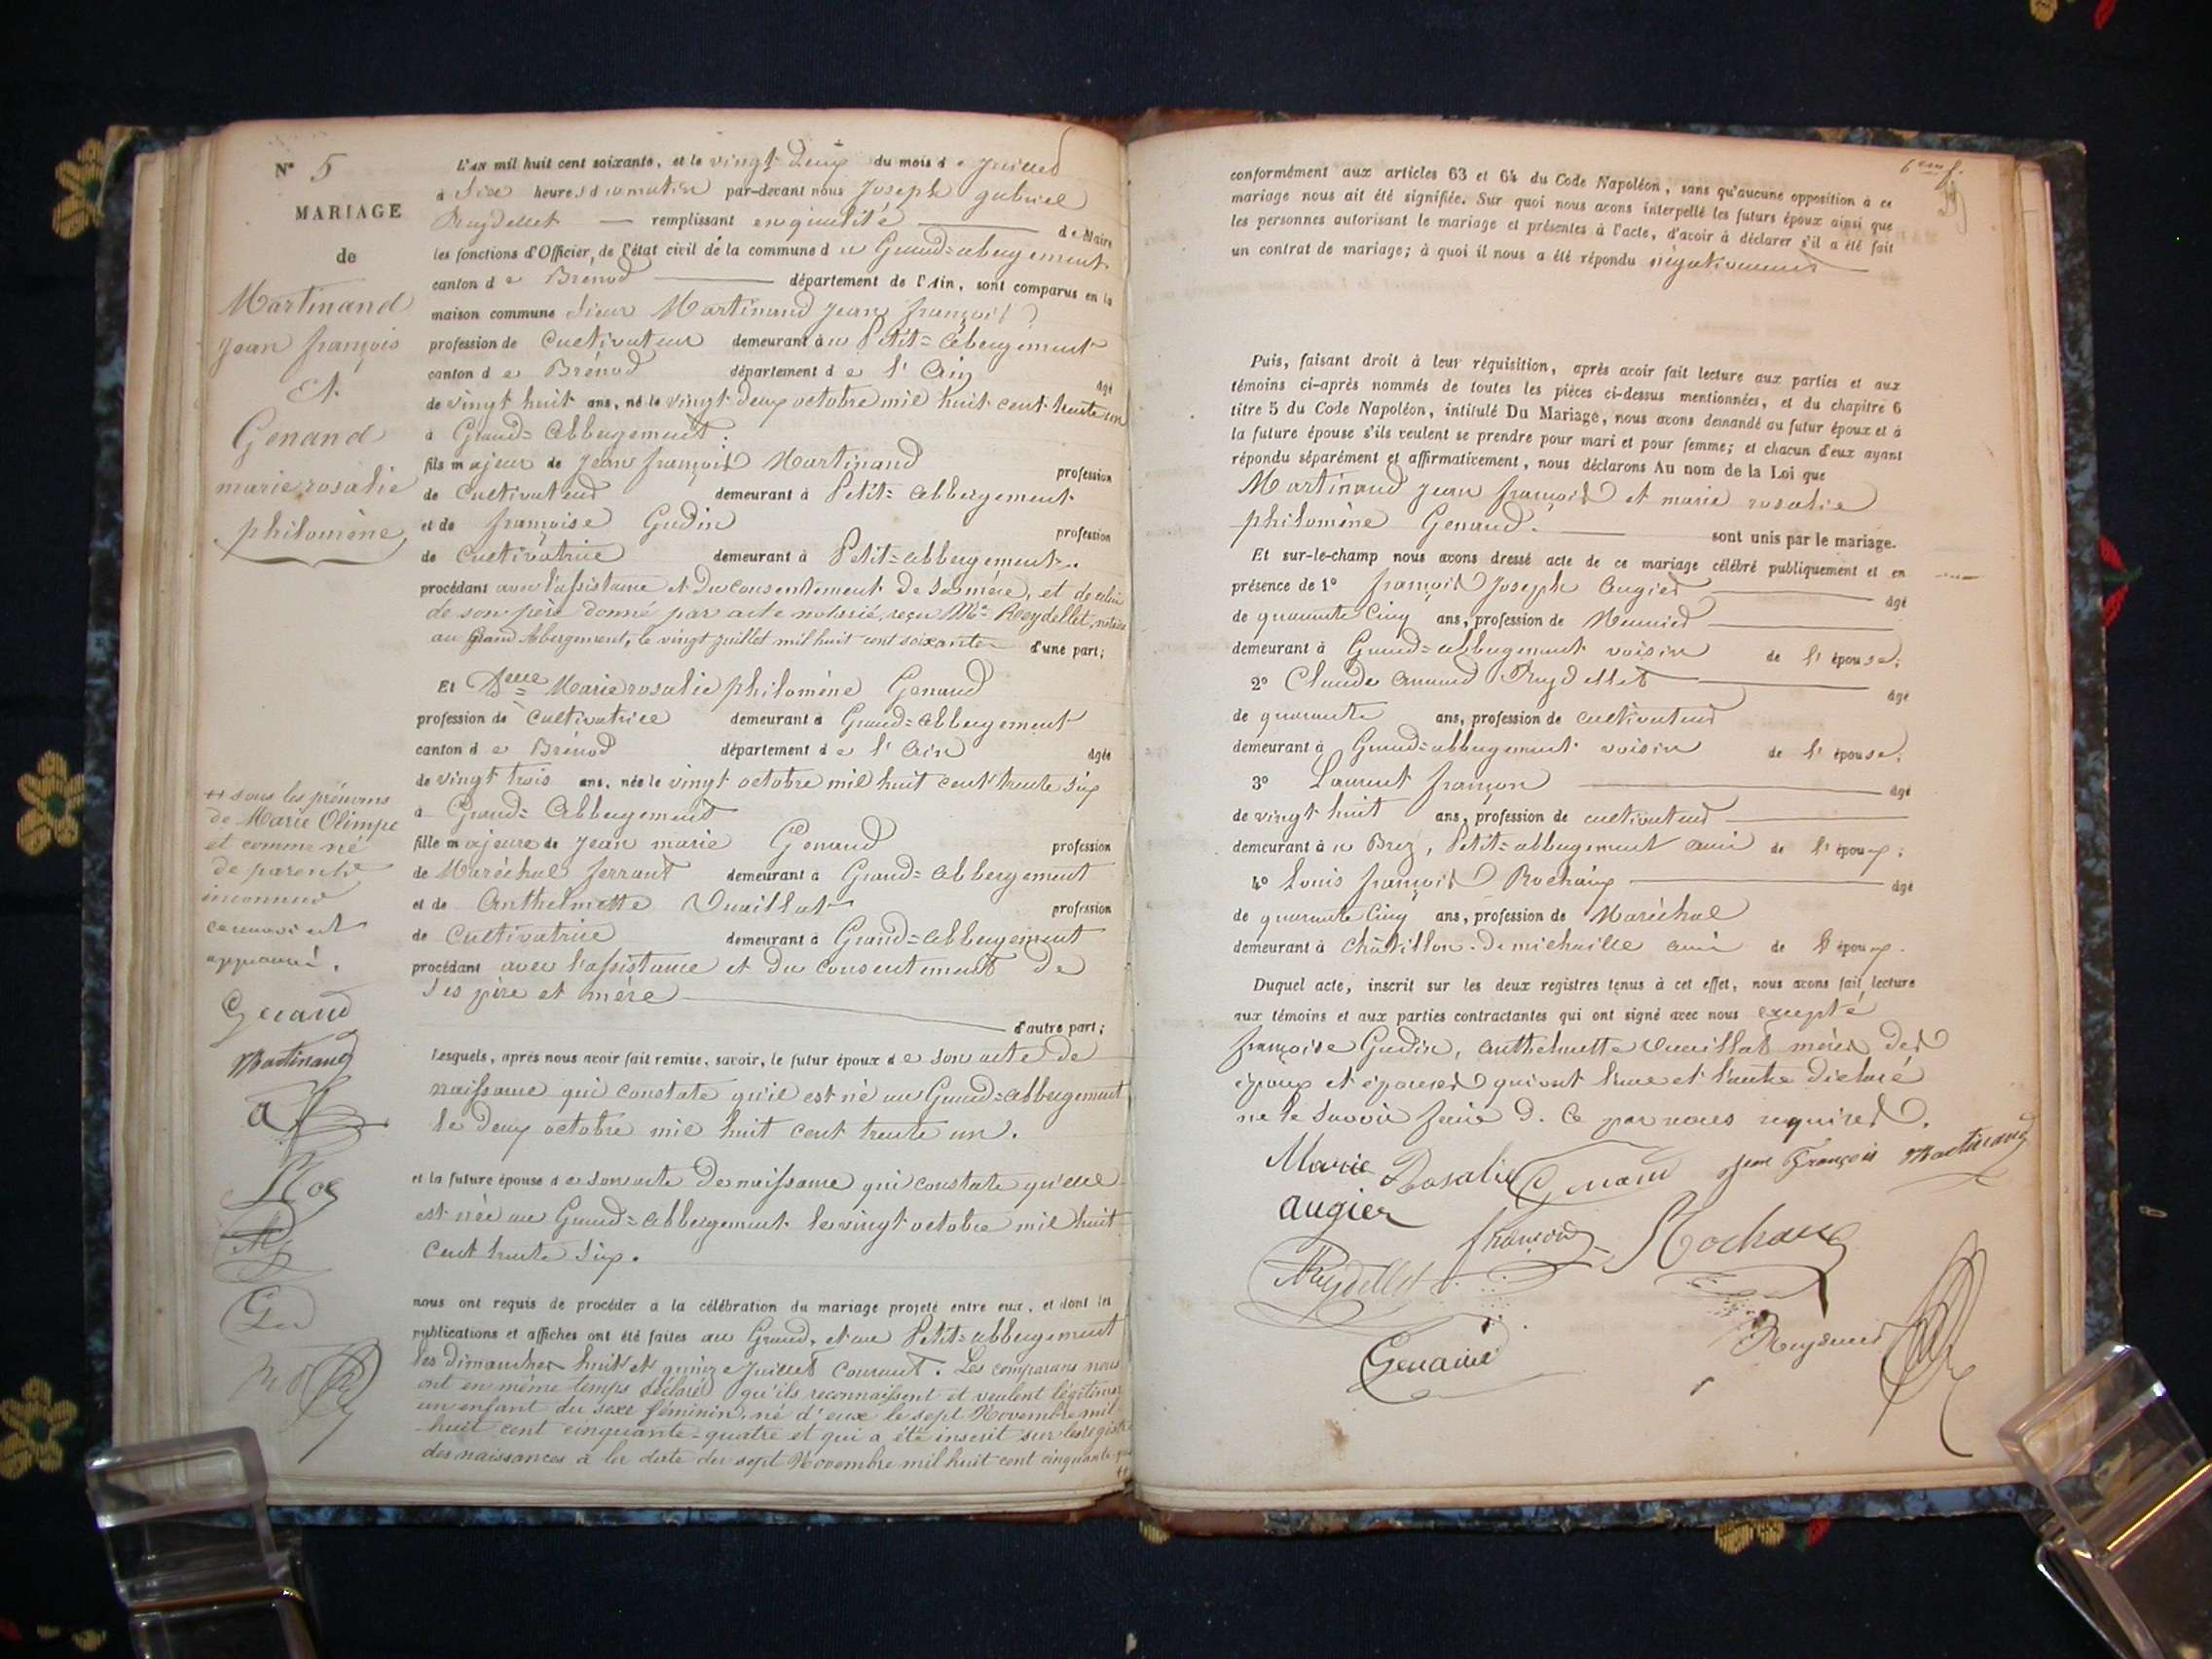 N° 5
MARIAGE
de
Martinand
jean françois
Et
Genand
marie rosalie
philomène
L'AN mil huit cent soixante, et le vingt deux du mois de juillet
à Six heures du matin par-devant nous Joseph gabriel
Reydellet — remplissant en qualité de Maire
les fonctions d'Officier de l'état civil de la commune du Grand=abergement
canton de Brénod département de l'Ain, sont comparus en la
maison commune Sieur Martinand jean françois
profession de Cultivateur demeurant au Petit=abergement
canton de Brénod département de l'Ain âgé
de vingt huit ans, né le vingt deux octobre mil huit cent trente un
à Grand=Abbergement
fils majeur de jean françois Martinand profession
de Cultivateur demeurant à Petit=abbergement
et de françoise Gudin profession
de Cultivatrice demeurant à Petit=abbergement.
procédant avec l'assistance et du consentement de sa mère, et de celui
de son père donné par acte notarié, reçu Me Reydellet, notaire
au Grand Abergement, le vingt juillet mil huit cent soixante d'une part;
Et Delle Marie rosalie philomène Genand
profession de Cultivatrice demeurant à Grand=abbergement
canton de Brénod département de l'Ain âgée
de vingt trois ans, née le vingt octobre mil huit cent trente six
à Grand=Abbergement
fille majeure de jean marie Genand profession
de Maréchal ferrant demeurant à Grand=abbergement
et de Anthelmette Vuaillat profession
de Cultivatrice demeurant à Grand=abbergement
procédant avec l'assistance et du consentement de
ses père et mère
d'autre part;
Lesquels, après nous avoir fait remise, savoir, le futur époux de son acte de
naissance qui constate qu'il est né au Grand=abbergement
le deux octobre mil huit cent trente un.
et la future épouse de son acte de naissance qui constate qu'elle
est née au Grand=abbergement le vingt octobre mil huit
cent trente six.
nous ont requis de procéder à la célébration du mariage projeté entre eux, et dont les
publications et affiches ont été faites au Grand, et au Petit=abbergement
les dimanches huit et quinze juillet courant. Les comparans nous
ont en même temps déclaré qu'ils reconnaissent et veulent légitimer
un enfant du sexe féminin, né d'eux le sept Novembre mil
huit cent cinquante-quatre et qui a été inscrit sur les registres
des naissances à la date du sept Novembre mil huit cent cinquante
++ sous les prénoms
de Marie Olimpe
et comme né
de parents
inconnus
ce renvoi est
approuvé.
Genand
Martinand
conformément aux articles 63 et 64 du Code Napoléon, sans qu'aucune opposition à ce
mariage nous ait été signifiée. Sur quoi nous avons interpellé les futurs époux ainsi que
les personnes autorisant le mariage et présentes à l'acte, d'avoir à déclarer s'il a été fait
un contrat de mariage; à quoi il nous a été répondu négativement
Puis, faisant droit à leur réquisition, après avoir fait lecture aux parties et aux
témoins ci-après nommés de toutes les pièces ci-dessus mentionnées, et du chapitre 6
titre 5 du Code Napoléon, intitulé Du Mariage, nous avons demandé au futur époux et à
la future épouse s'ils veulent se prendre pour mari et pour femme; et chacun d'eux ayant
répondu séparément et affirmativement, nous déclarons Au nom de la Loi que
Martinand jean françois et marie rosalie
philomène Genand. sont unis par le mariage.
Et sur-le-champ nous avons dressé acte de ce mariage célébré publiquement et en
présence de 1° françois Joseph Augier âgé
de quarante Cinq ans, profession de Meunier
demeurant à Grand=abbergement voisin de l'épouse;
2° Claude Armand Reydellet âgé
de quarante ans, profession de cultivateur
demeurant à Grand=abbergement voisin de l'épouse;
3° Laurent françon âgé
de vingt huit ans, profession de cultivateur
demeurant à Petit=abbergement ami de l'époux;
4° Louis françois Rochaix âgé
de quarante Cinq ans, profession de Maréchal
demeurant à Châtillon-de michaille ami de l'époux.
Duquel acte, inscrit sur les deux registres tenus à cet effet, nous avons fait lecture
aux témoins et aux parties contractantes qui ont signé avec nous excepté
françoise Gudin, anthelmette Vuaillat mères des
époux et épouses qui ont l'une et l'autre déclaré
ne le savoir faire D. Ce par nous requises.
Marie Rosalie Genand Jean François Martinand
augier françon Rochaix
Reydellet
Genand Reydellet